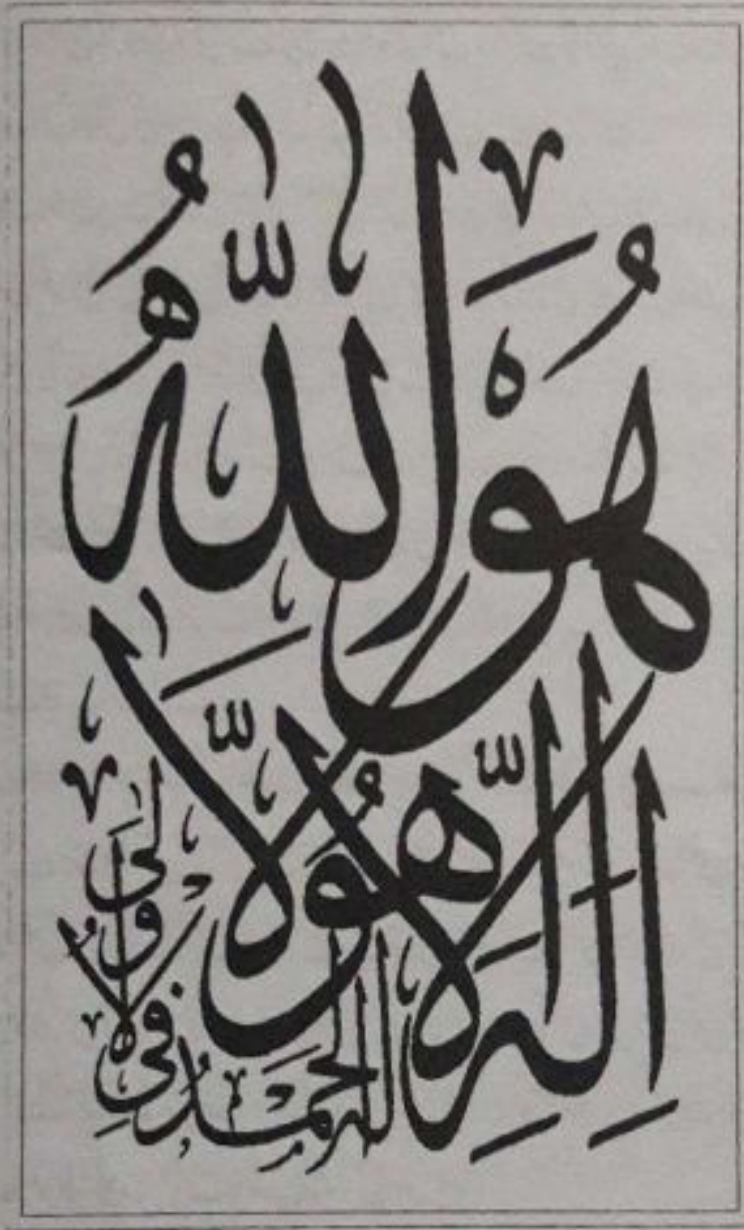 هُوَ اللّٰهُ
لَا إِلٰهَ إِلَّا هُوَ
لَهُ الْحَمْدُ فِي الْأُولَى